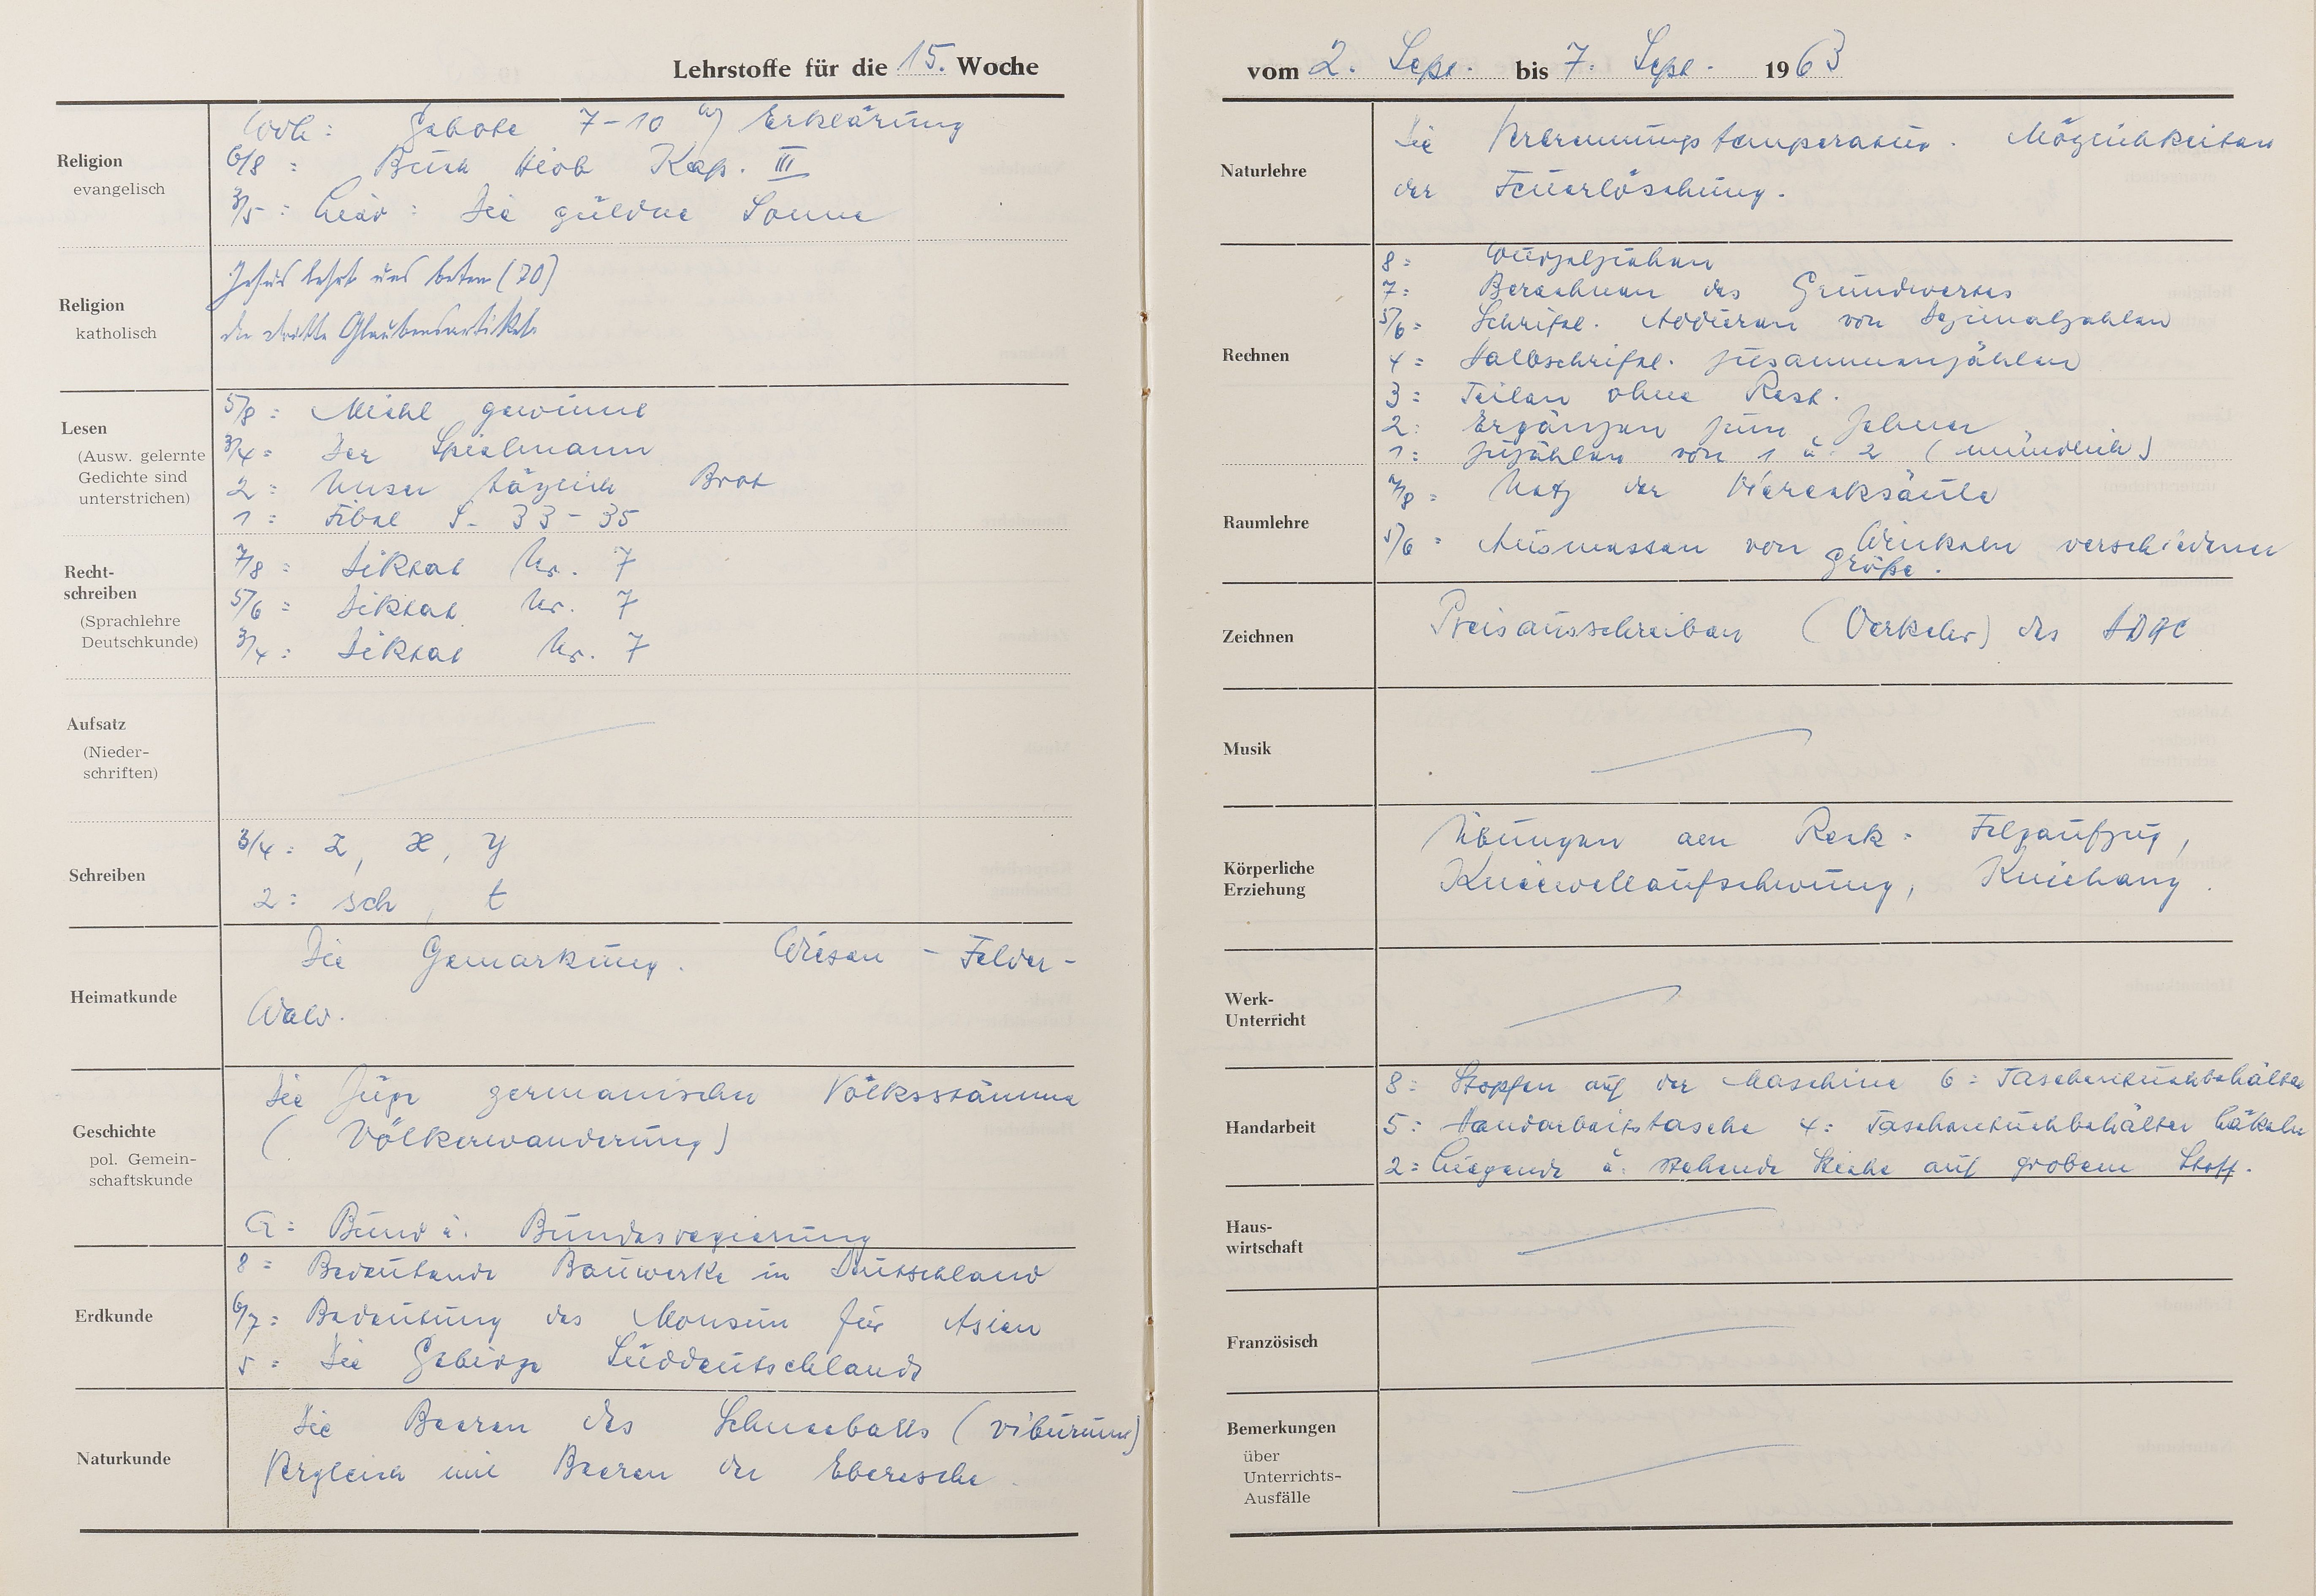 Lehrstoffe für die 15. Woche
Religion
evangelisch
Wdh: Gebote 7-10 m/ Erklärung
6/8 : Buch Hiob Kap. III
3/5 : Lied : Die güldne Sonne
Religion
katholisch
Jesus lehrt uns beten (70)
der dritte Glaubensartikel.
Lesen
(Ausw. gelernte
Gedichte sind
unterstrichen)
5/8 : Michl gewinnt
3/4 : Der Spielmann
2 : Unser täglich Brot
1 : Fibel S. 33-35
Recht-
schreiben
(Sprachlehre
Deutschkunde)
7/8 : Diktat Nr. 7
5/6 : Diktat Nr. 7
3/4 : Diktat Nr. 7
Aufsatz
(Nieder-
schriften)
Schreiben
3/4 : z, x, y
2 : sch, t
Heimatkunde
Die Gemarkung. Wiesen - Felder -
Wald.
Geschichte
pol. Gemein-
schaftskunde
Die Züge germanischer Volksstämme
(Völkerwanderung)
G: Bund u. Bundesregierung
Erdkunde
8 : Bedeutende Bauwerke in Deutschland
6/7 : Bedeutung des Monsun für Asien
5 : Die Gebirge Süddeutschlands
Naturkunde
Die Beeren des Schneeballs (viburnum)
Vergleich mit Beeren der Eberesche.
vom 2. Sept. bis 7. Sept. 1963
Naturlehre
Die Verbrennungstemperatur. Möglichkeiten
der Feuerlöschung.
Rechnen
8 : Wurzelziehen
7 : Berechnen des Grundwertes
5/6 : Schriftl. Addieren von Dezimalzahlen
4 : Halbschriftl. Zusammenzählen
3 : Teilen ohne Rest.
2 : Ergänzen zum Zehner
1 : Zuzählen von 1 u. 2 (mündlich)
Raumlehre
7/8 : Netz der Vierecksäule
5/6 : Ausmessen von Winkeln verschiedener
Größe.
Zeichnen
Preisausschreiben (Verkehr) des ADAC
Musik
Körperliche
Erziehung
Übungen am Reck: Felgaufzug,
Knieewellaufschwung, Kniehang.
Werk-
Unterricht
Handarbeit
8 : Stopfen auf der Maschine 6 : Taschentuchbehälter
5 : Handarbeitstasche 4 : Taschentuchbehälter häkeln
2 : Liegende u. stehende Stiche auf grobem Stoff.
Haus-
wirtschaft
Französisch
Bemerkungen
über
Unterrichts-
Ausfälle